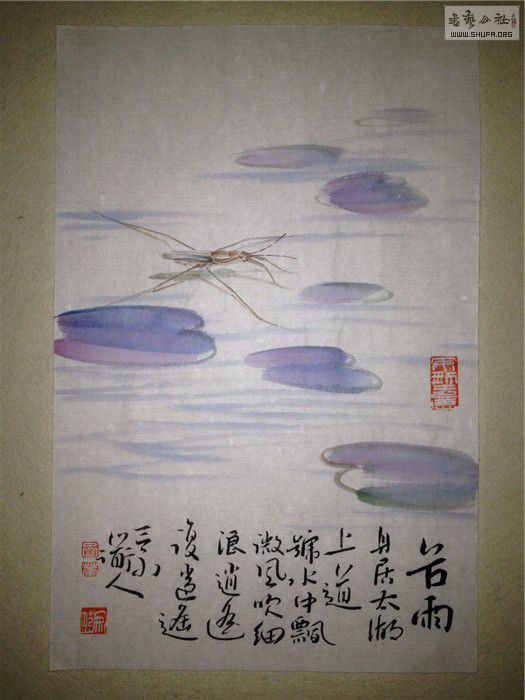 书艺公社
WWW.SHUFA.ORG
谷雨
身居太湖
上道
號水中飄
微风吹細
浪逍遥
復逍遥
道人